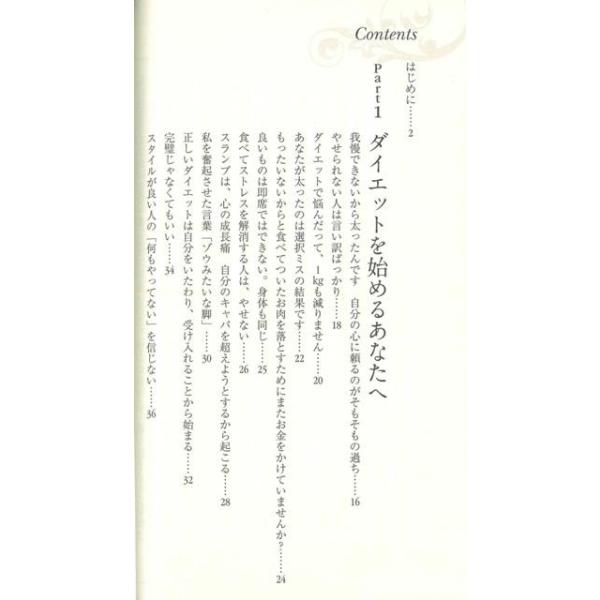 Contents
はじめに……2
Part1 ダイエットを始めるあなたへ
我慢できないから太ったんです 自分の心に頼るのがそもそもの過ち……16
やせられない人は言い訳ばっかり……18
ダイエットで悩んだって、1kgも減りません……20
あなたが太ったのは選択ミスの結果です……22
もったいないからと食べてついたお肉を落とすためにまたお金をかけていませんか?……24
良いものは即席ではできない。身体も同じ……25
食べてストレスを解消する人は、やせない……26
スランプは、心の成長痛 自分のキャパを超えようとするから起こる……28
私を奮起させた言葉「ゾウみたいな脚」……30
正しいダイエットは自分をいたわり、受け入れることから始まる……32
完璧じゃなくてもいい……34
スタイルが良い人の「何もやってない」を信じない……36